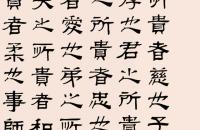 貴者慈也子
孝也君之所
之所貴者忠也
者愛也弟之
之所貴者和
貴者柔也事師